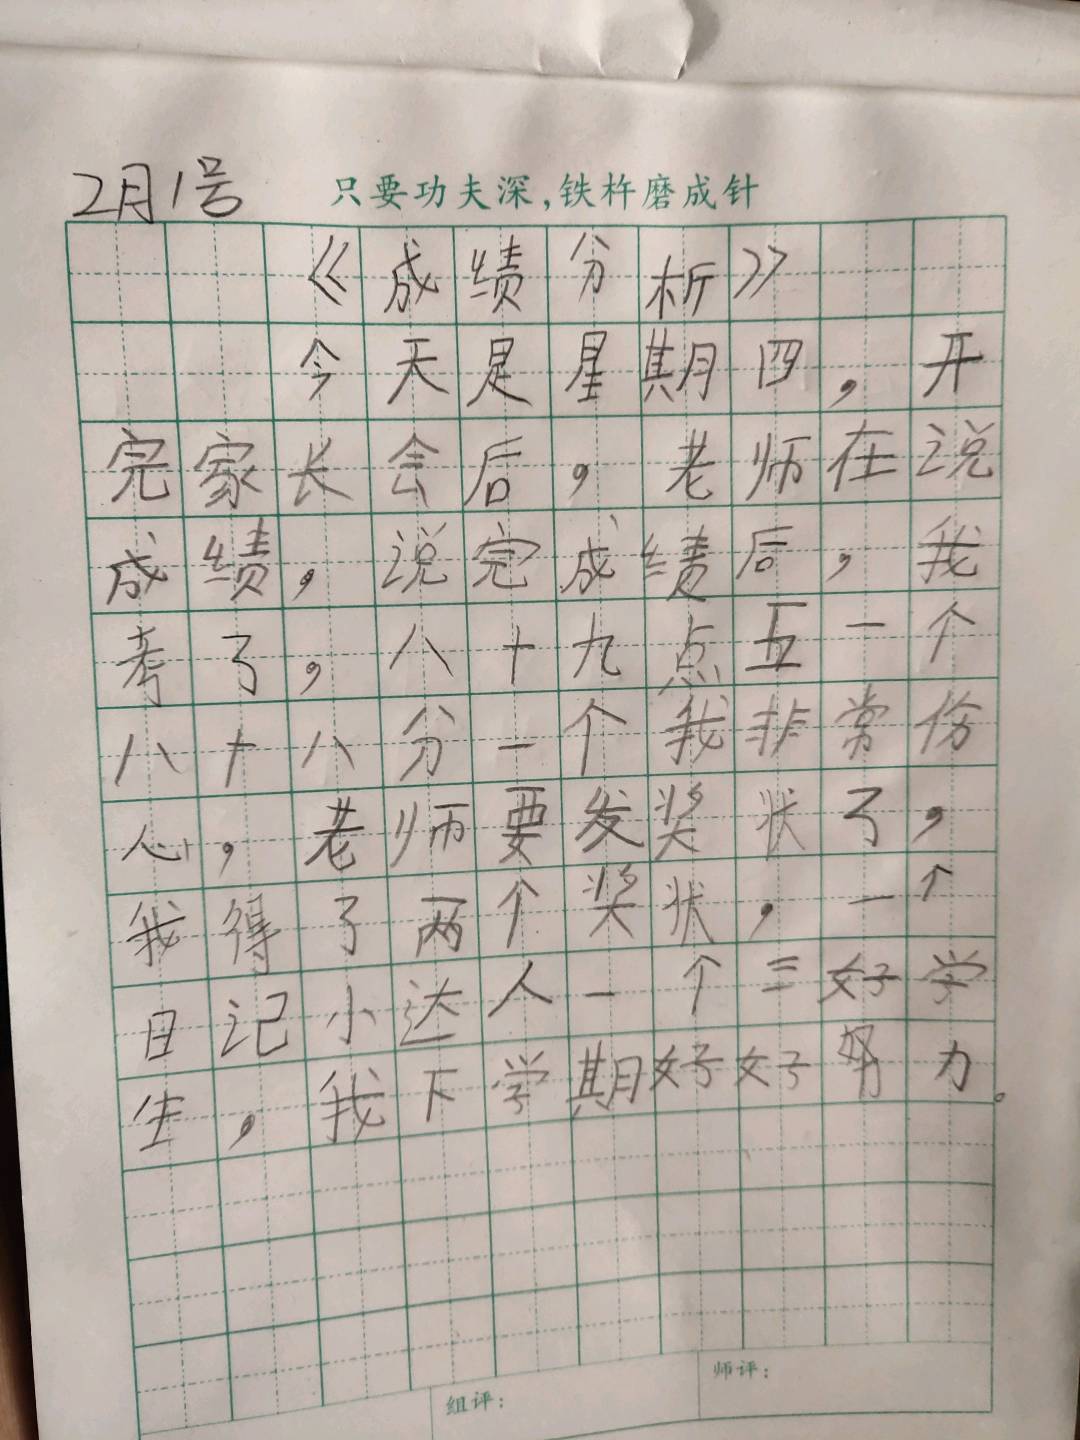 2月1号
只要功夫深,铁杵磨成针
《成绩分析》
今天是星期四，开
完家长会后，老师在说
成绩，说完成绩后，我
考了，八十九点五一个
八十八分一个我非常份
心，老师要发奖状了，
我得了两个奖状，一个
日记小达人一个三好学
生，我下学期好好努力。
组评：
师评：